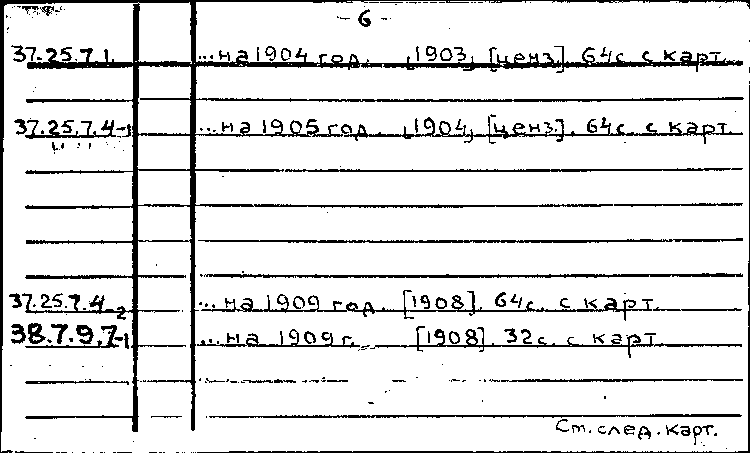 - 6 -
37.25.7.1. ...на 1904 год. [1903] [ценз.]. 64с. с карт.
37.25.7.4-1 ...на 1905 год. [1904] [ценз.]. 64с. с карт.
37.25.7.4-2 ...на 1909 год. [1908]. 64с. с карт.
38.7.9.7-1 ...на 1909 г. [1908]. 32с. с карт.
См. след. карт.